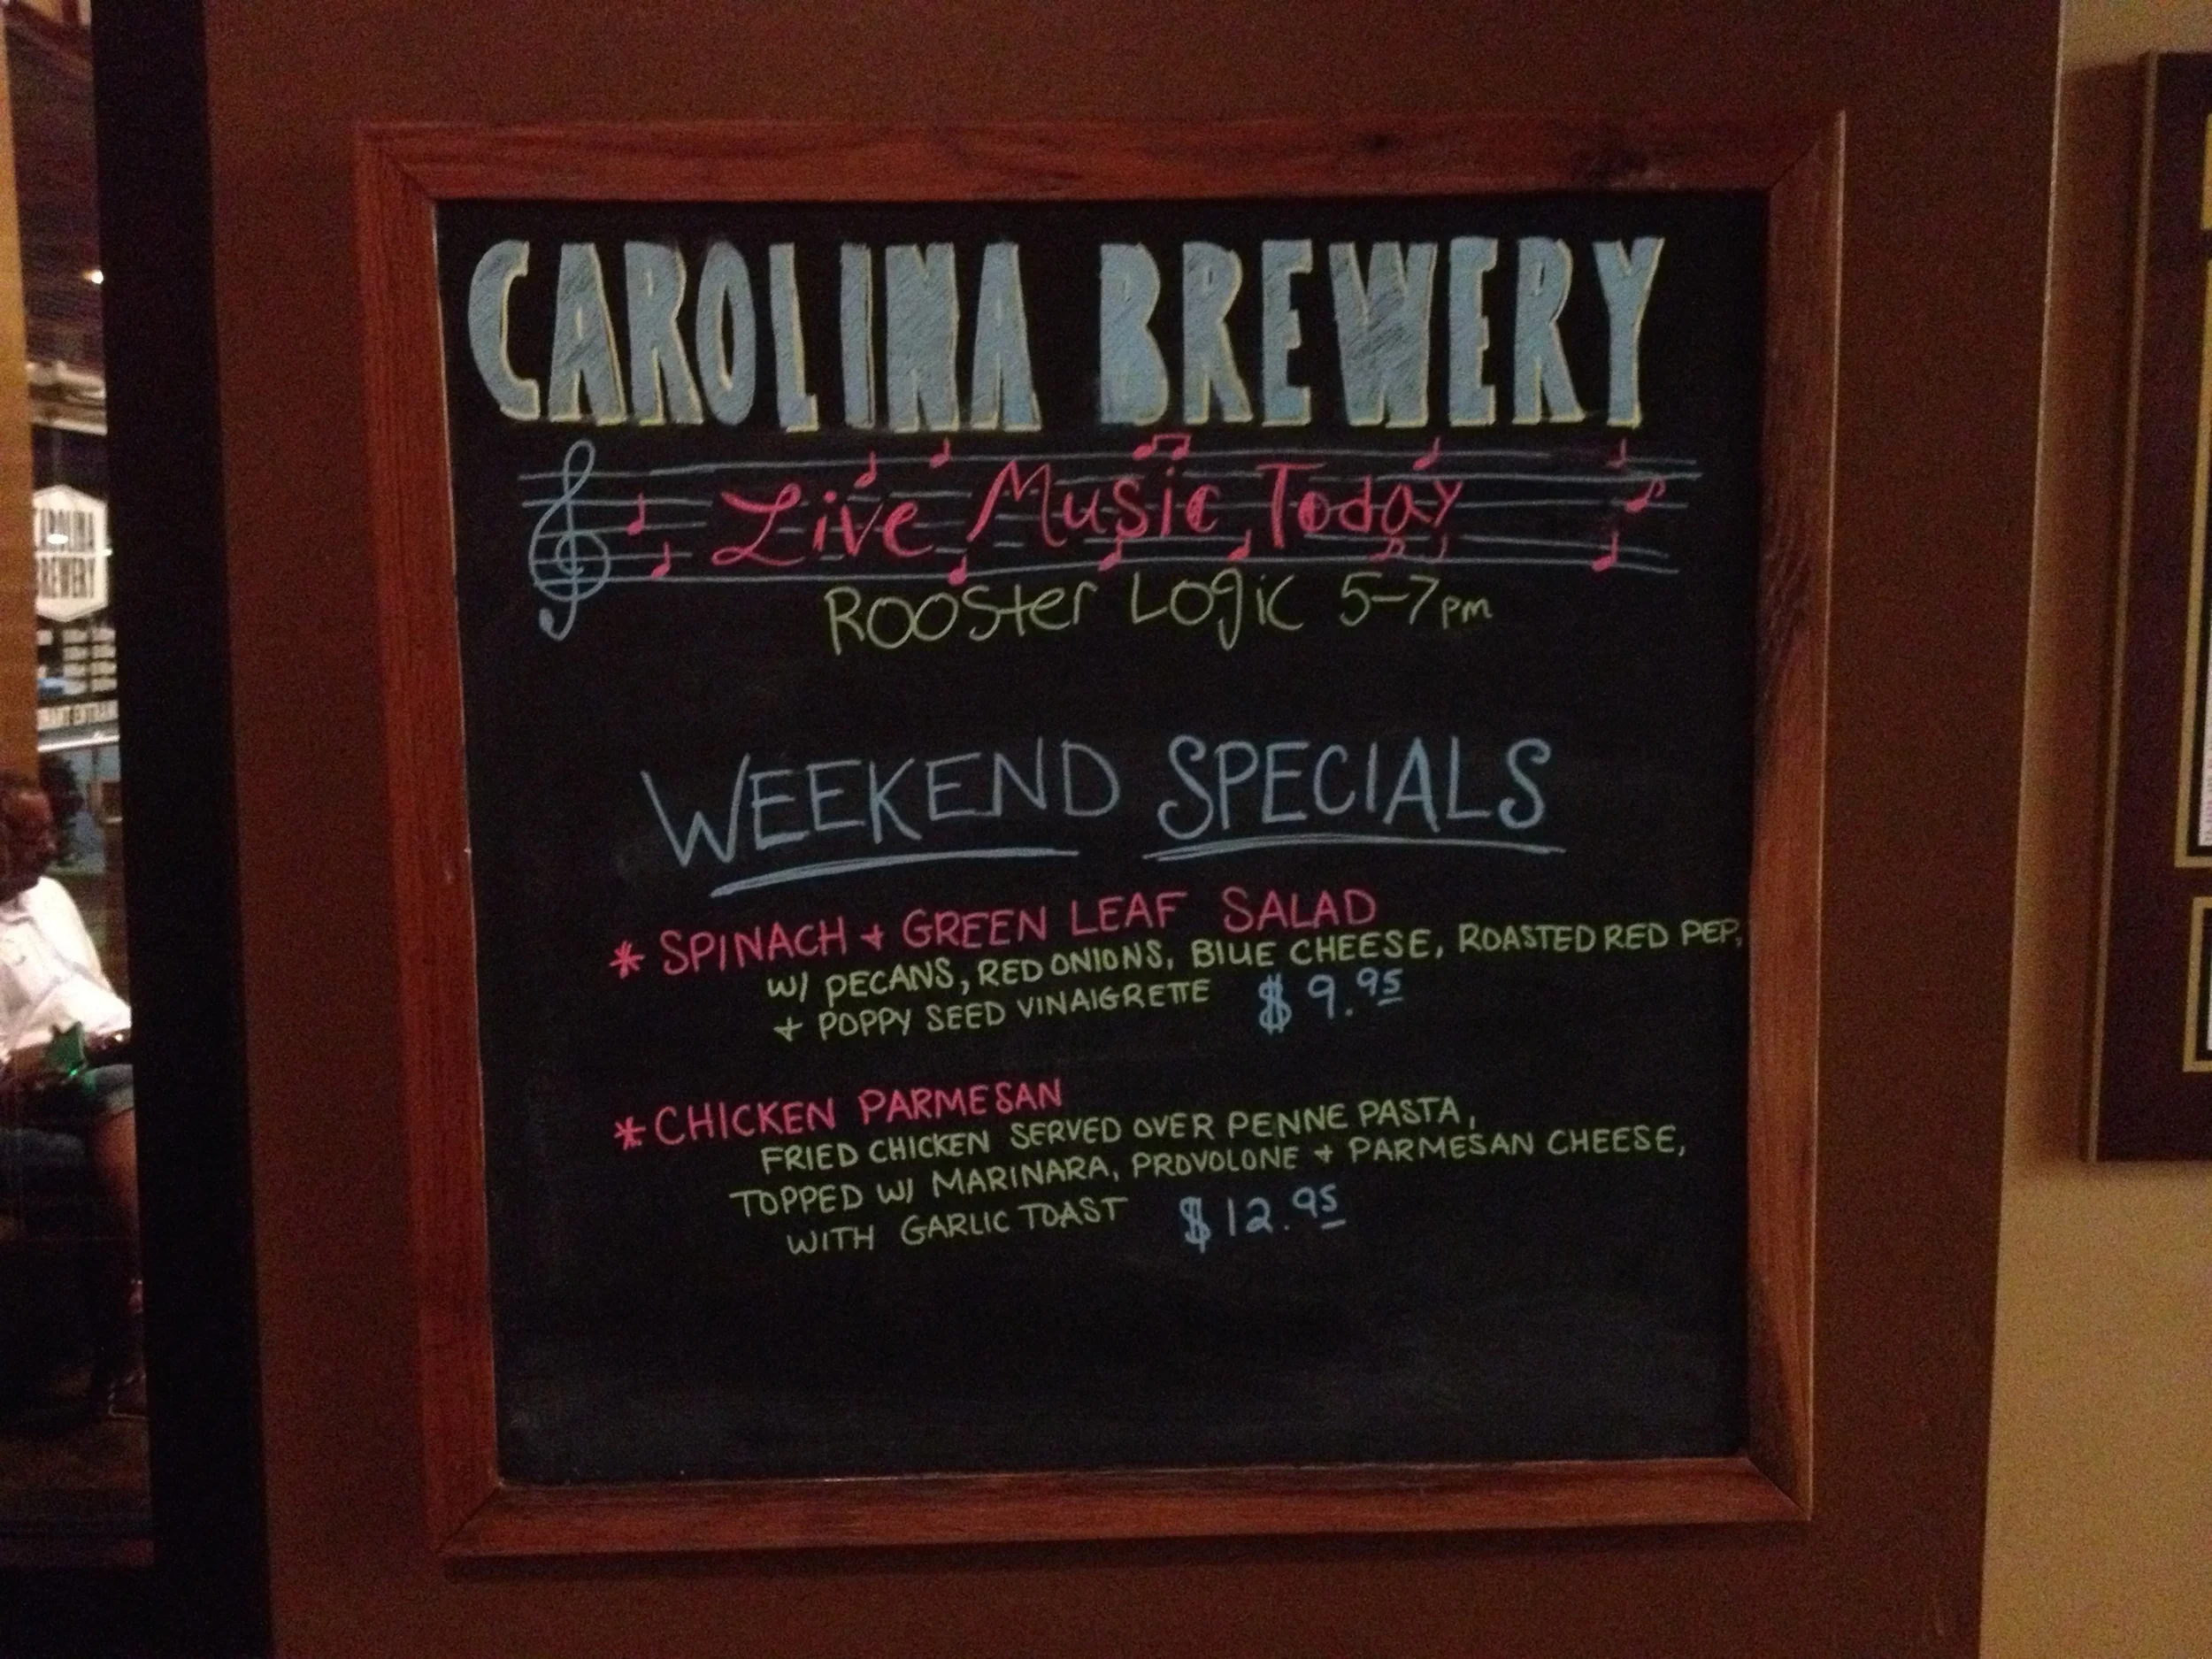 CAROLINA BREWERY
Live Music Today
Rooster Logic 5-7pm
WEEKEND SPECIALS
* SPINACH + GREEN LEAF SALAD
W/ PECANS, RED ONIONS, BLUE CHEESE, ROASTED RED PEP,
+ POPPY SEED VINAIGRETTE $9.95
* CHICKEN PARMESAN
FRIED CHICKEN SERVED OVER PENNE PASTA,
TOPPED W/ MARINARA, PROVOLONE + PARMESAN CHEESE,
WITH GARLIC TOAST $12.95
BREWERY